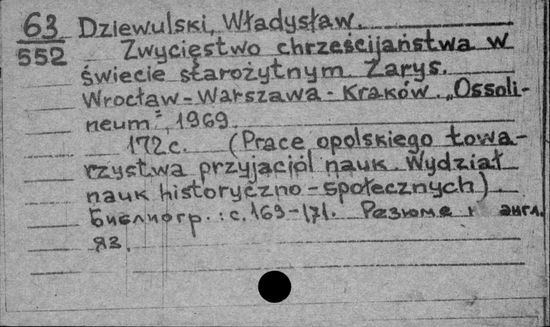 63
552
Dziewulski, Władysław.
Zwycięstwo chrześcijaństwa w
świecie starożytnym. Zarys.
Wrocław-Warszawa-Kraków. „Ossoli-
neum", 1969.
172с. (Prace opolskiego towa-
rzystwa przyjaciół nauk. Wydział
nauk historyczno-społecznych).
Библиогр.: с. 169-171. Резюме англ.
яз.